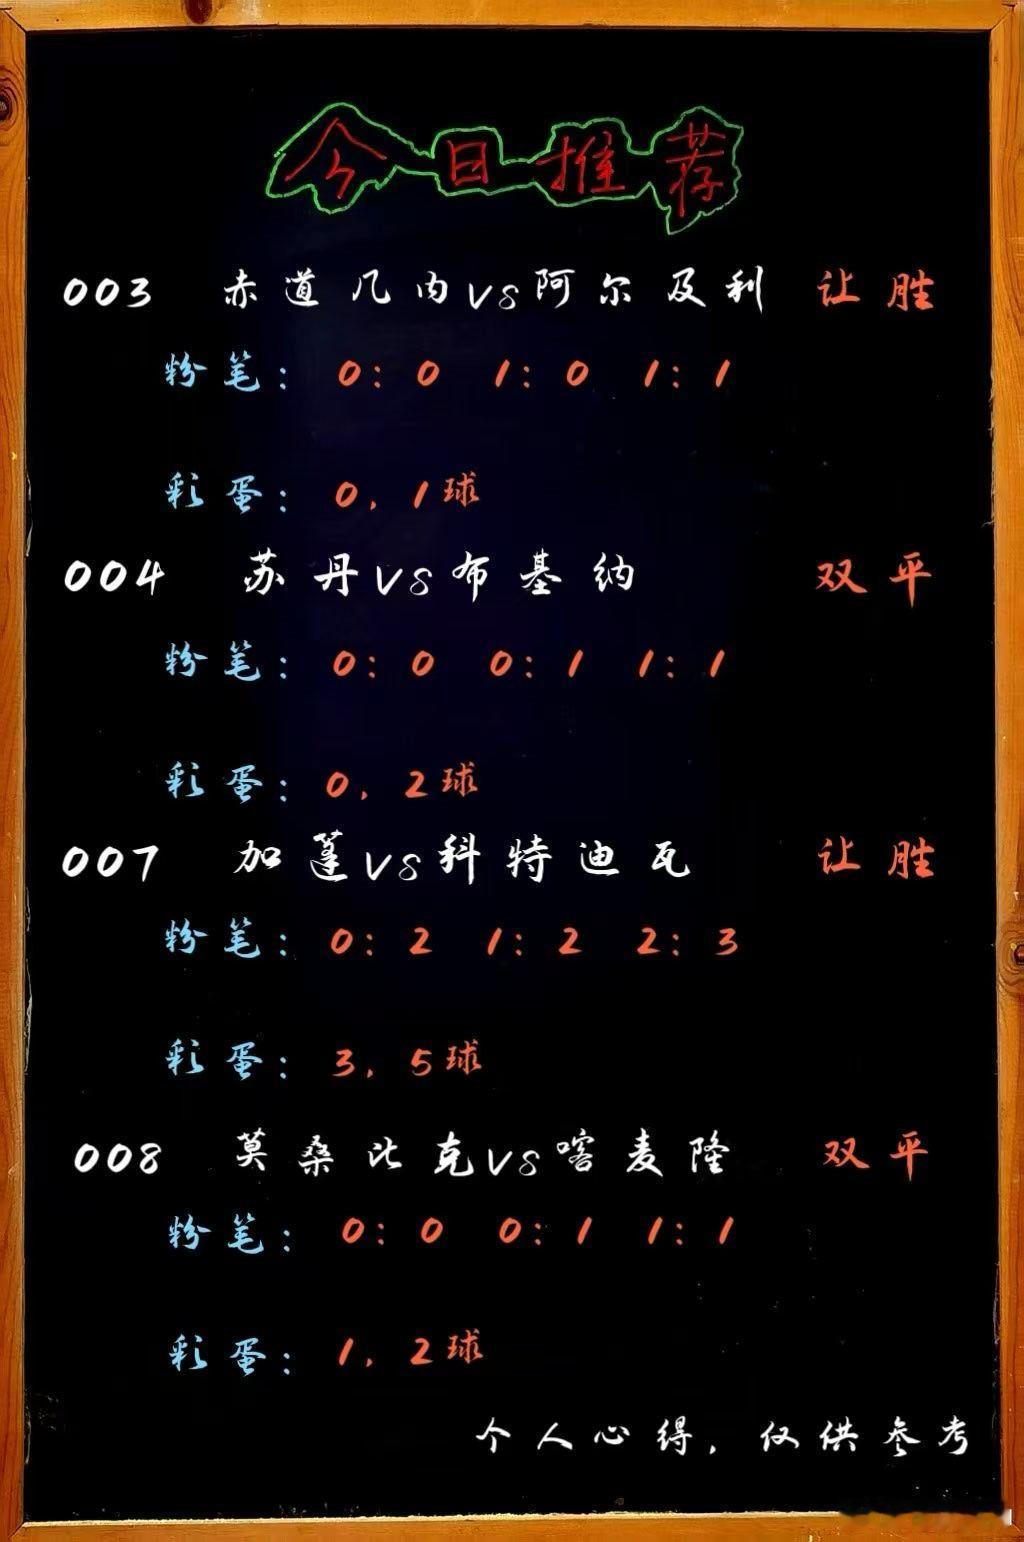 今日推荐
003 赤道几内vs阿尔及利 让胜
粉笔: 0:0 1:0 1:1
彩蛋: 0, 1球
004 苏丹vs布基纳 双平
粉笔: 0:0 0:1 1:1
彩蛋: 0, 2球
007 加蓬vs科特迪瓦 让胜
粉笔: 0:2 1:2 2:3
彩蛋: 3, 5球
008 莫桑比克vs喀麦隆 双平
粉笔: 0:0 0:1 1:1
彩蛋: 1, 2球
个人心得, 仅供参考